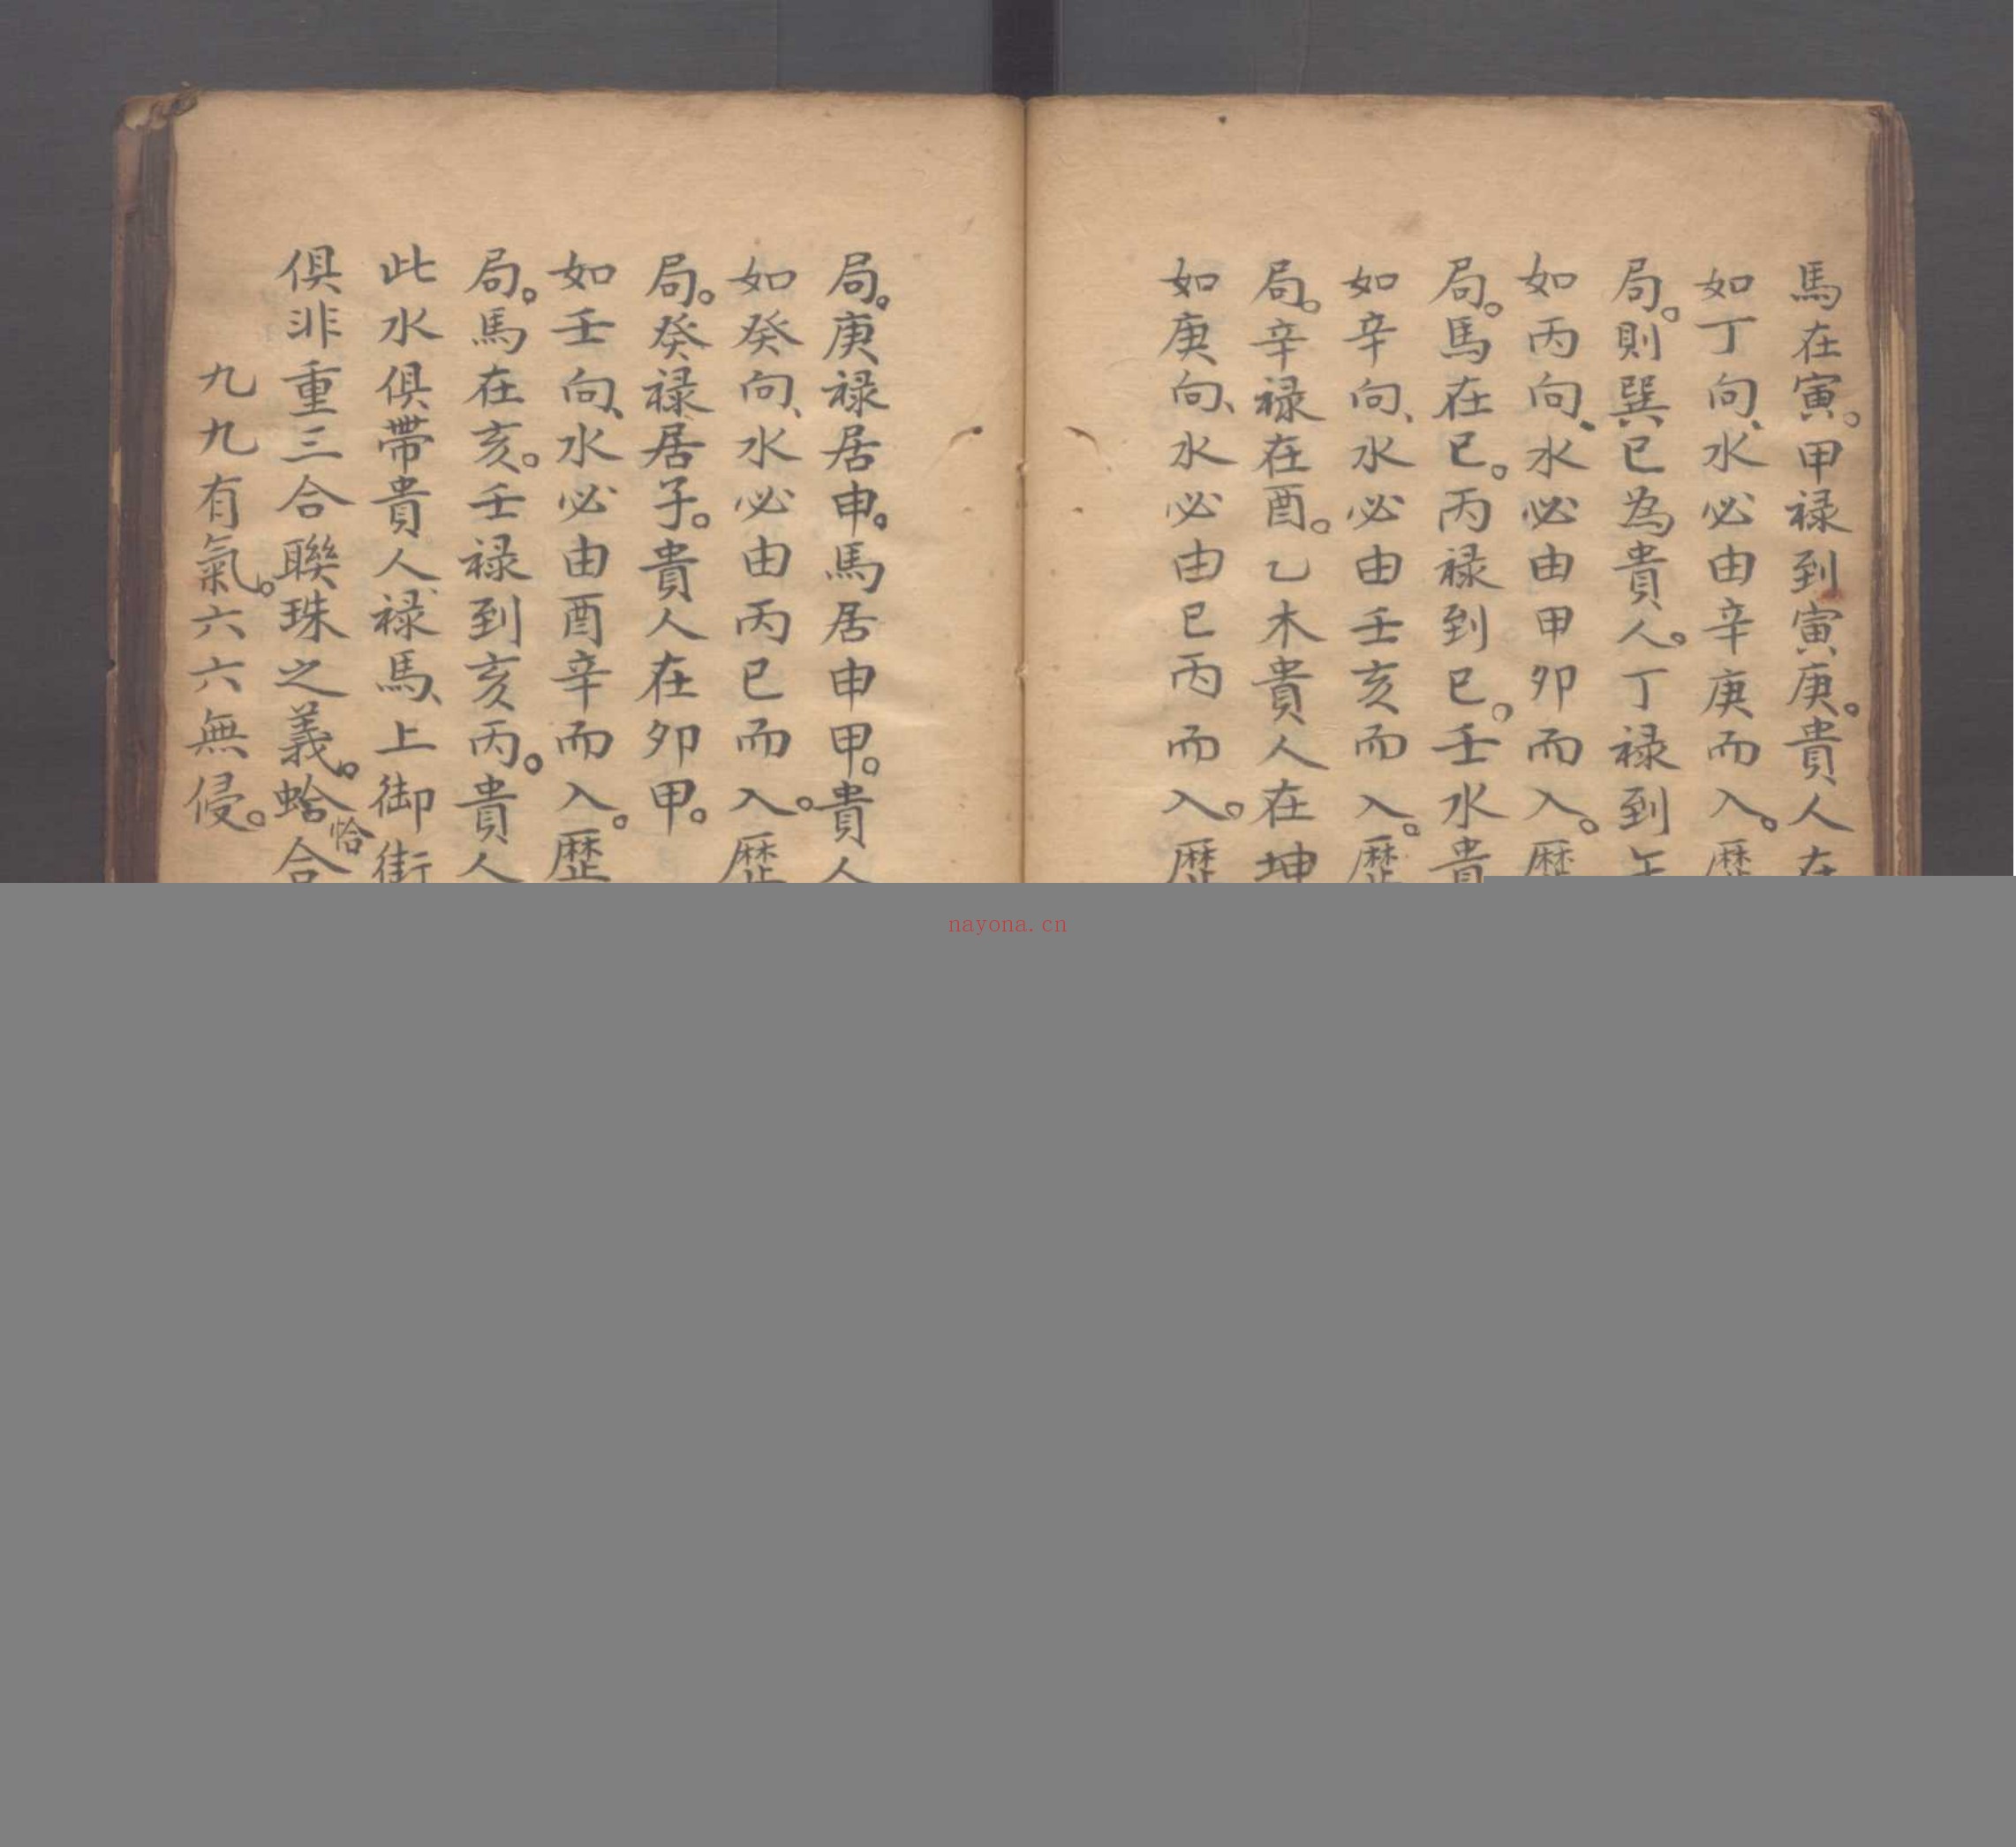 馬在寅。甲禄到寅庚。貴人在
如丁向、水必由辛庚而入。歷
局。則巽巳為貴人。丁禄到午
如丙向、水必由甲卯而入。歷
局。馬在巳。丙禄到巳。壬水貴
如辛向、水必由壬亥而入。歷
局。辛禄在酉。乙木貴人在坤
如庚向、水必由巳丙而入。歷
局。庚禄居申。馬居申甲。貴人
如癸向、水必由丙巳而入。歷
局。癸禄居子。貴人在卯甲。
如壬向、水必由酉辛而入。歷
局。馬在亥。壬禄到亥丙。貴人
此水俱帶貴人、禄馬、上御街
俱非重三合聯珠之義。蛤合
恰
九九有氣。六六無侵。
nayona.cn